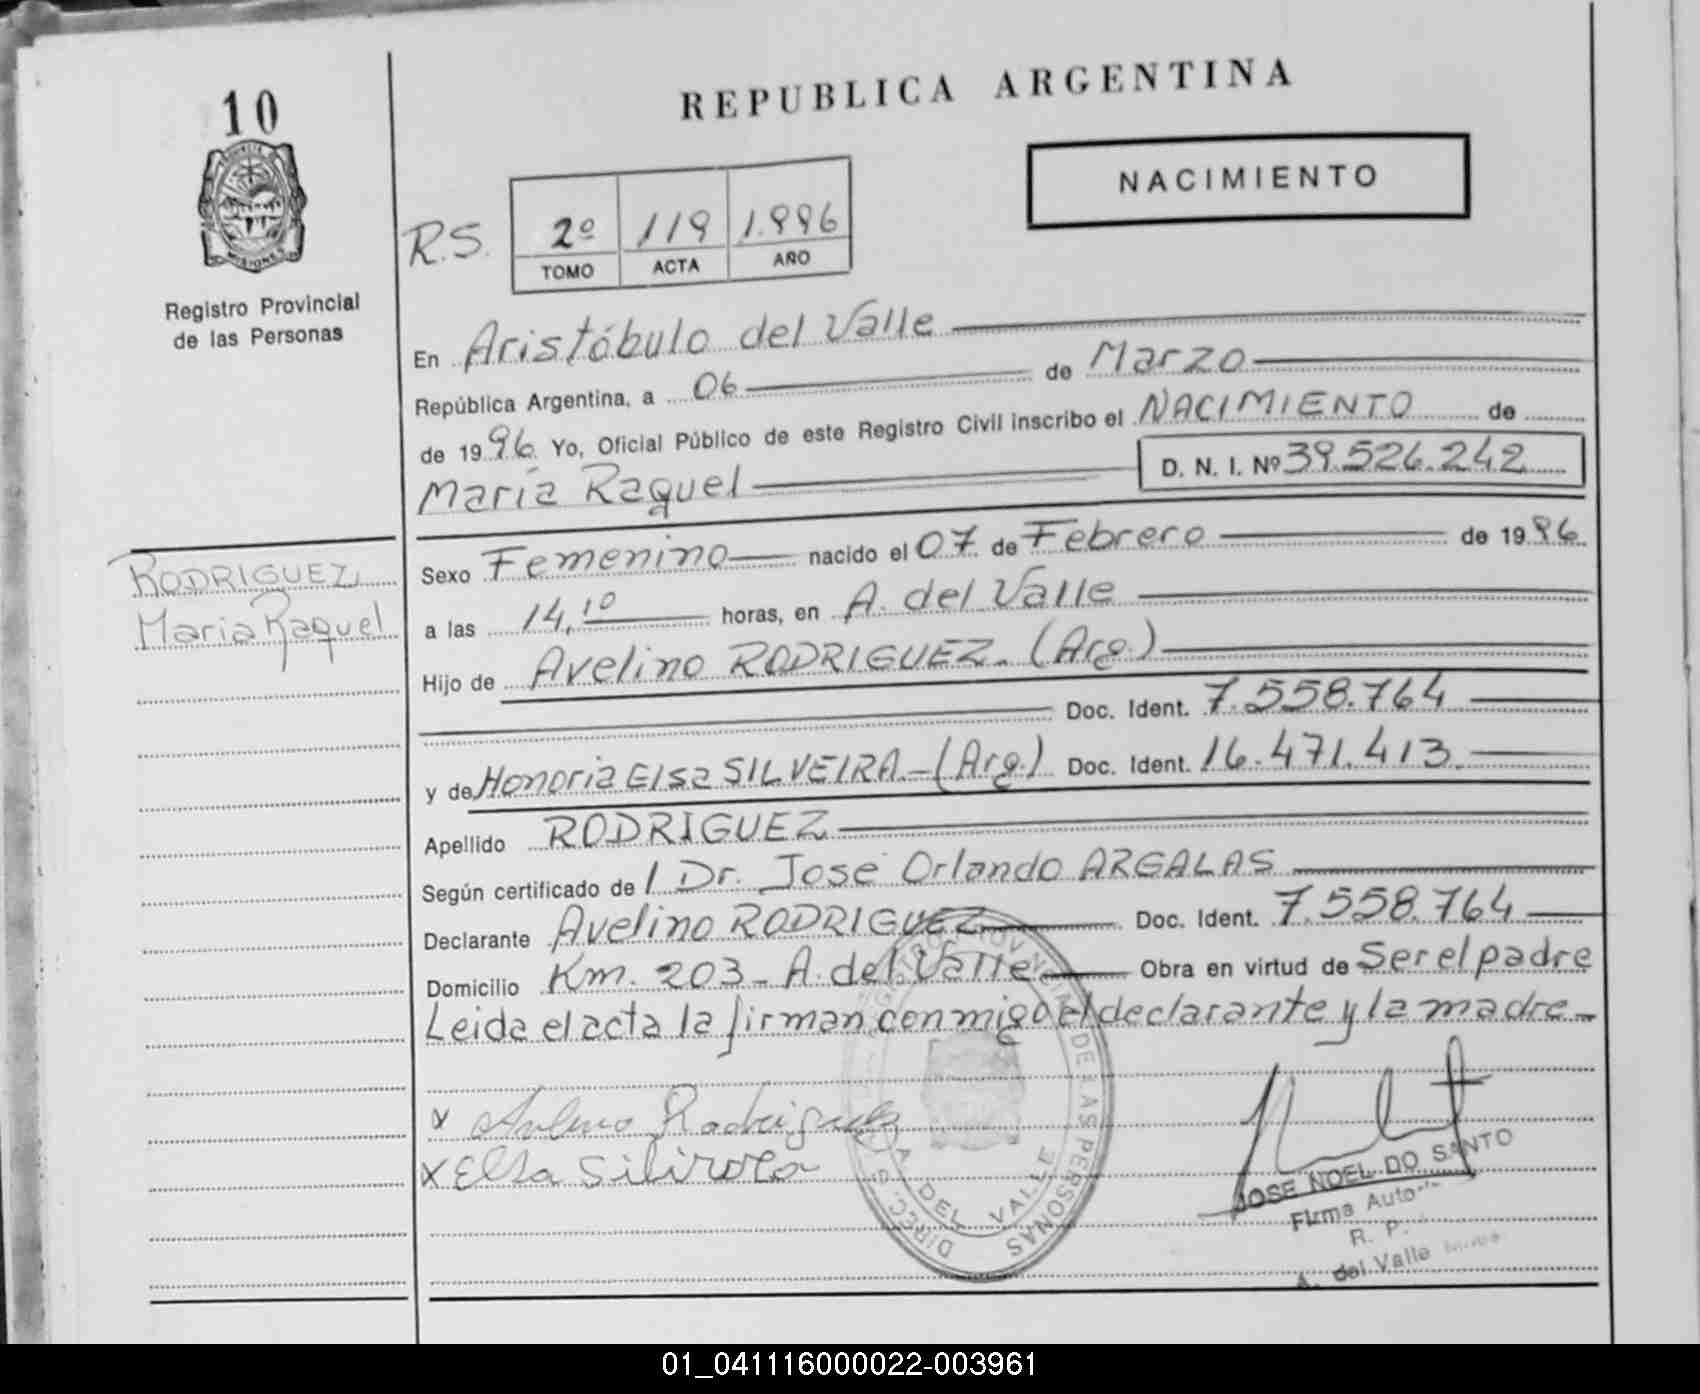 10
REPUBLICA ARGENTINA
NACIMIENTO
PROVINCIA DE
MISIONES
Registro Provincial
de las Personas
R.S.
2º 119 1.996
TOMO ACTA AÑO
En Aristóbulo del Valle
República Argentina, a 06 de Marzo
de 1996. Yo, Oficial Público de este Registro Civil inscribo el NACIMIENTO de
María Raquel D. N. I. Nº 39.526.242
RODRIGUEZ,
María Raquel
Sexo Femenino nacido el 07 de Febrero de 1996.
a las 14,10 horas, en A. del Valle
Hijo de Avelino RODRIGUEZ.- (Arg.)
Doc. Ident. 7.558.764
y de Honoria Elsa SILVEIRA.-(Arg.) Doc. Ident. 16.471.413.
Apellido RODRIGUEZ
Según certificado de l Dr. José Orlando ARGALAS
Declarante Avelino RODRIGUEZ Doc. Ident. 7.558.764
Domicilio Km. 203 - A. del Valle Obra en virtud de Ser el padre
Leida el acta la firman conmigo el declarante y la madre.-
x Avelino Rodriguez
x Elsa
DE LAS PERSONAS
A. DEL VALLE
DIREC.
JOSE NOEL DO SANTO
Firma
R. P.
A. del Valle
01_041116000022-003961